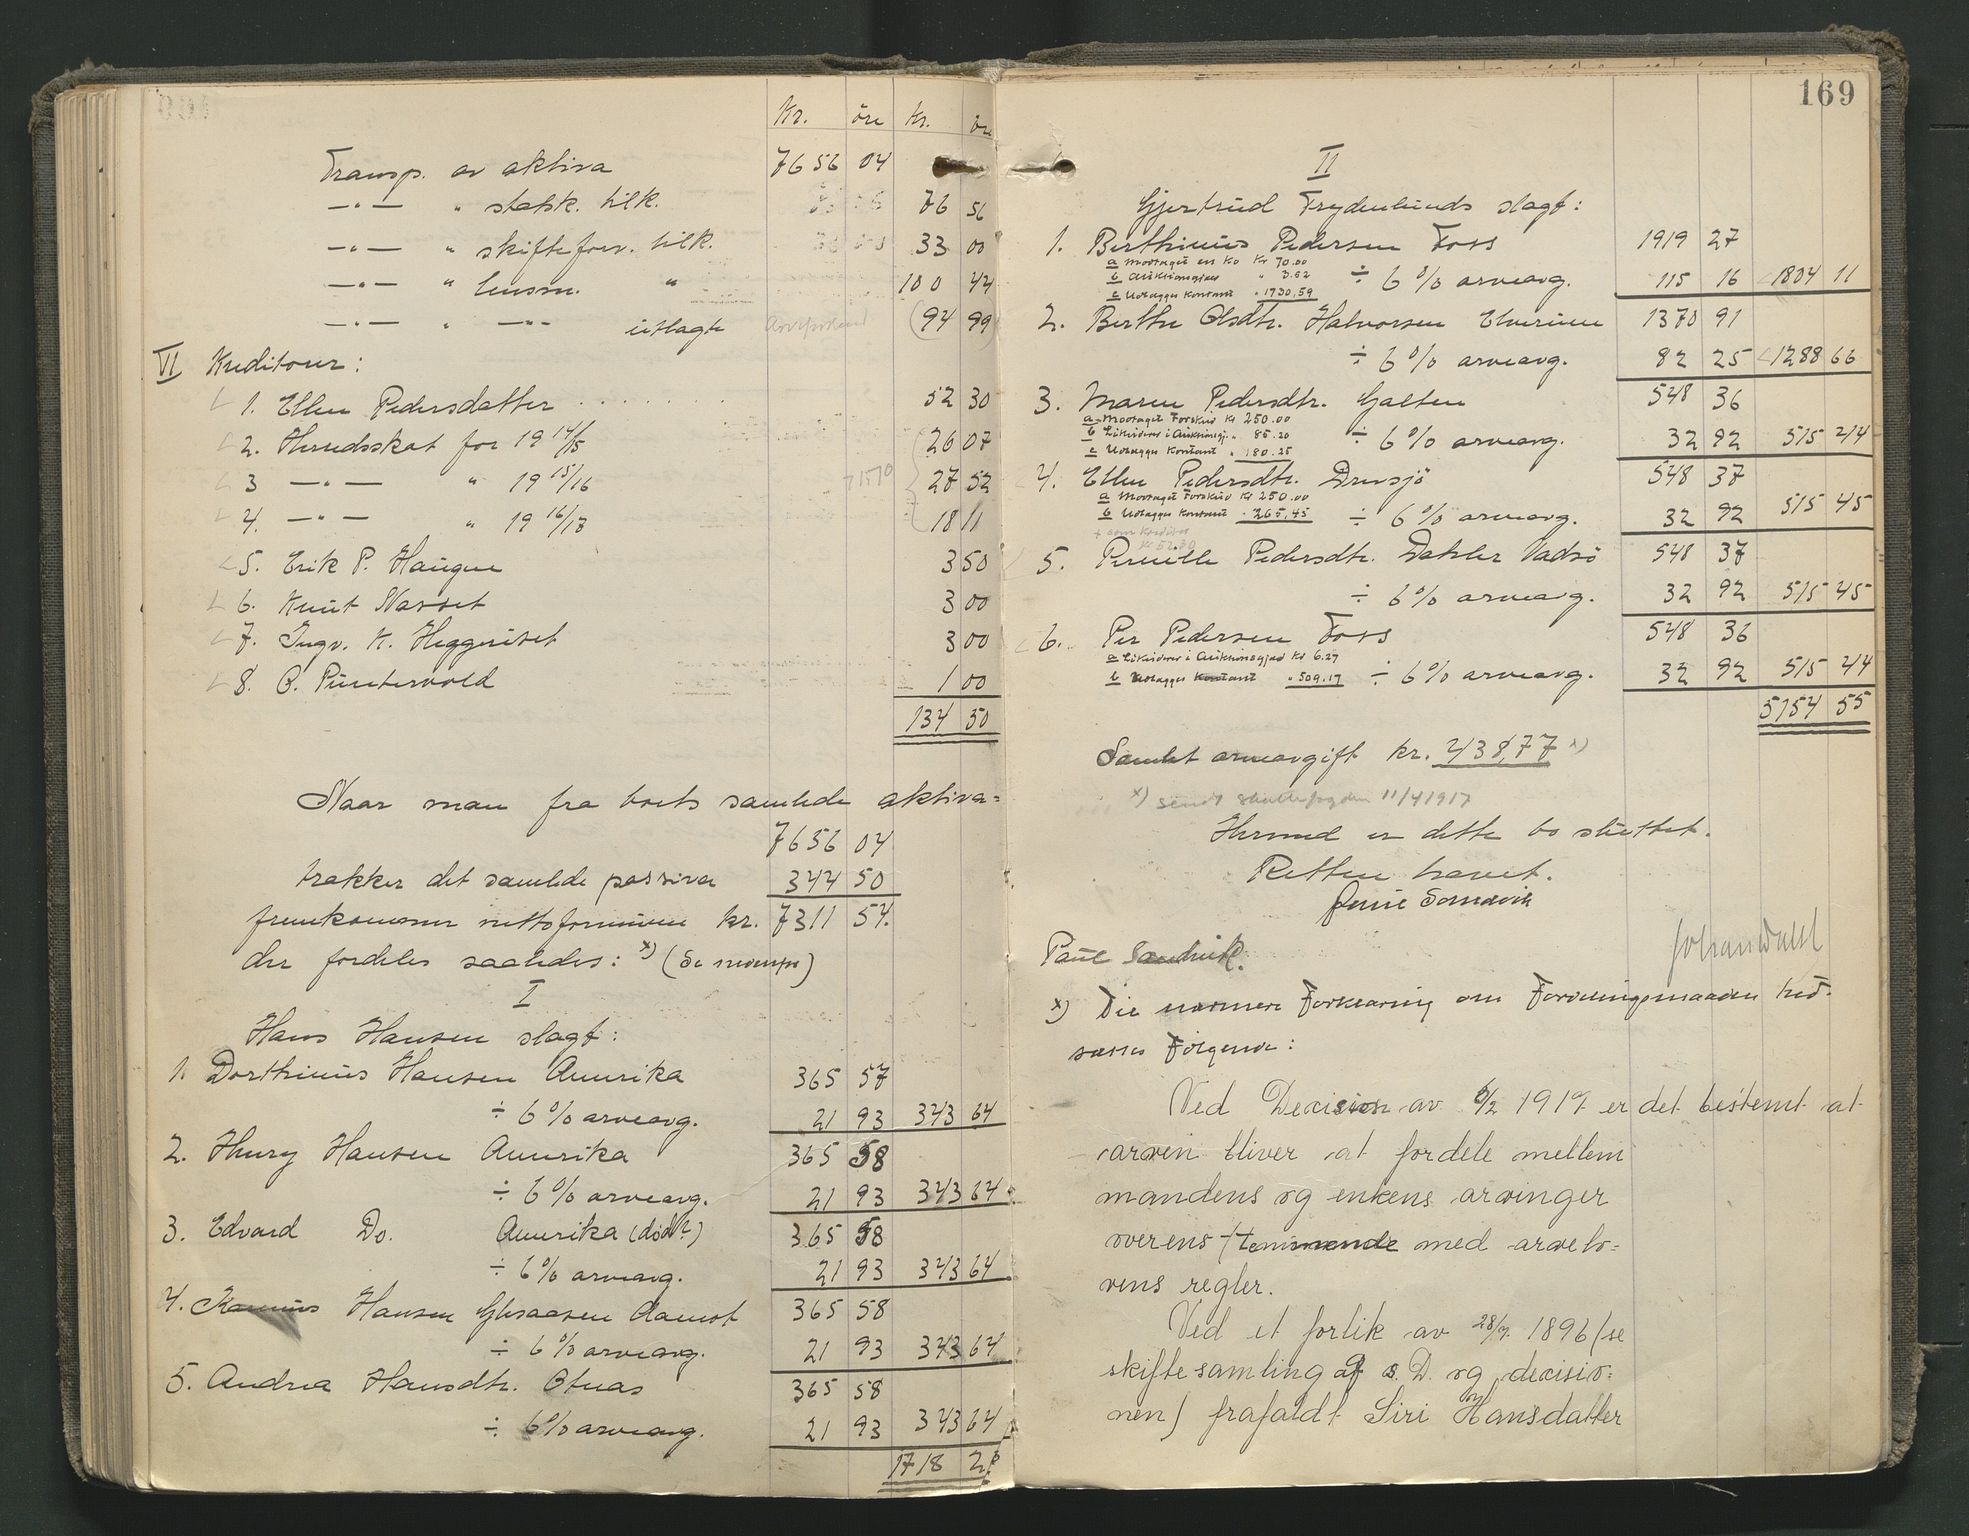 Kr. öre Kr. öre
Transp. av aktiva 7656 04
—"— " statsk. tilk. 76 56
—"— " skifteforv. tilk. 33 00
—"— " lensm. " 100 44
—"— " —"— utlagte (94 99)
VI Kreditorer:
1. Ellen Pedersdatter 52 30
2. Herredsskat for 19 14/15 26 07
3 —"— " 19 15/16 27 52
4. —"— " 19 16/17 18 11
5. Erik P. Haugen 3 50
6. Knut Nasset 3 00
7. Ingv. K. Heggeriset 3 00
8. O. Puntervold 1 00
134 50
Naar man fra boets samlede aktiva=
7656 04
trækker det samlede passiva 344 50
fremkommer nettoformuen kr. 7311 54.
der fordeles saaledes: x) (Se
I
Hans Hansen slagt:
1. Dorthinius Hansen Amerika 365 57
÷ 6% arveavg. 21 93 343 64
2. Henry Hansen Amerika 365 58
÷ 6% arveavg. 21 93 343 64
3. Edvard Do. Amerika (död?) 365 58
÷ 6% arveavg. 21 93 343 64
4. Hansen Aamot 365 58
÷ 6% arveavg. 21 93 343 64
5. Andrea Hansdtr. Otnas 365 58
÷ 6% arveavg. 21 93 343 64
1718 2
169
II
Gjertrud Frydenlunds slagt:
1. Berthinius Pedersen Foss 1919 27
a Mottaget en Ko Kr 70.00
b Auktionsgjæld " 3.52 ÷ 6% arveavg. 115 16 1804 11
c Udlægges Kontant " 1730,59
2. Berthe Olsdtr. Halvorsen Elverum 1370 91
÷ 6% arveavg. 82 25 1288 66
3. Maren Pedersdtr. Galten 548 36
a Mottaget Forskud Kr 250.00
b Likviderer i Auktionsgj. " 85.20 ÷ 6% arveavg. 32 92 515 44
c Udlægges Kontant " 180.25
4. Ellen Pedersdtr. Drevsjö 548 37
a Mottaget Forskud Kr 250.00
b Udlægges Kontant " 265,45 ÷ 6% arveavg. 32 92 515 45
+ som kreditor
kr 52.30
5. Pernille Pedersdtr. Dahler Vadsö 548 37
÷ 6% arveavg. 32 92 515 45
6. Per Pedersen Foss 548 36
a Likviderer i Auktionsgjæld Kr 6.27
b Udlægges Kontant " 509.17 ÷ 6% arveavg. 32 92 515 44
5154 55
Samlet arveavgift kr. 438,77 x)
x) sendt skattefogden 11/4 1917
Hermed er dette bo sluttet.
Retten hævet.
Paul Sandvik.
Johan Dahl
x) Die nærmere Forklaring om Fordelingsmaaden hid-
sættes Følgende:
Ved Decision av 6/2 1917 er det bestemt at
arven bliver at fordele mellem
mandens og enkens arvinger
overensstemmende med arvelo=
vens regler.
Ved et forlik av 28/7. 1896 (se
skiftesamling af s. D. og decisio=
nen) frafaldt Siri Hansdatter